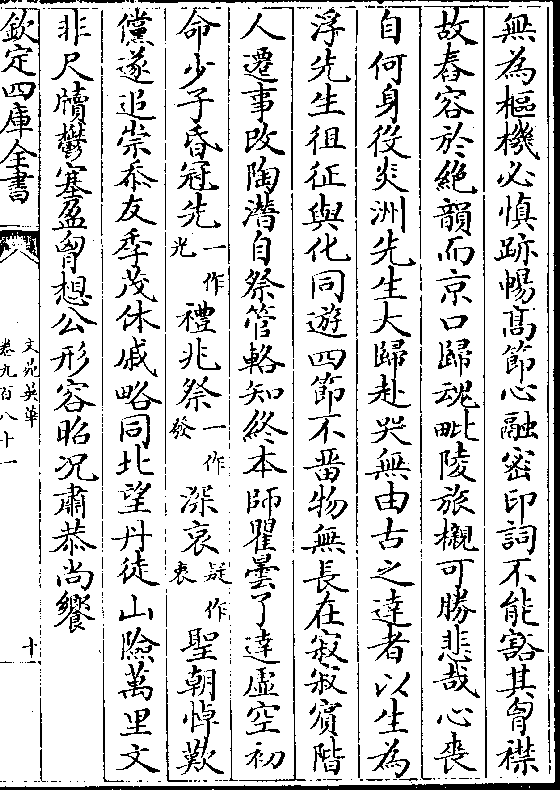 無為樞機必慎跡暢高節心融密印詞不能豁其胷襟
故舂容於絶韻而京口歸魂毗陵旅櫬可勝悲哉心喪
自何身役炎洲先生大歸赴哭無由古之達者以生為
浮先生徂征與化同遊四節不畱物無長在寂寂賔階
人遷事改陶潛自祭管輅知終本師瞿曇了達虛空初
命少子昏冠先一作光禮兆祭一作發深哀疑作衷聖朝悼歎
儻遂追崇忝友季茂休戚略同北望丹徒山險萬里文
非尺牘鬱塞盈胷想公形容昭况肅恭尚饗
欽定四庫全書
文苑英華
卷九百八十一
十